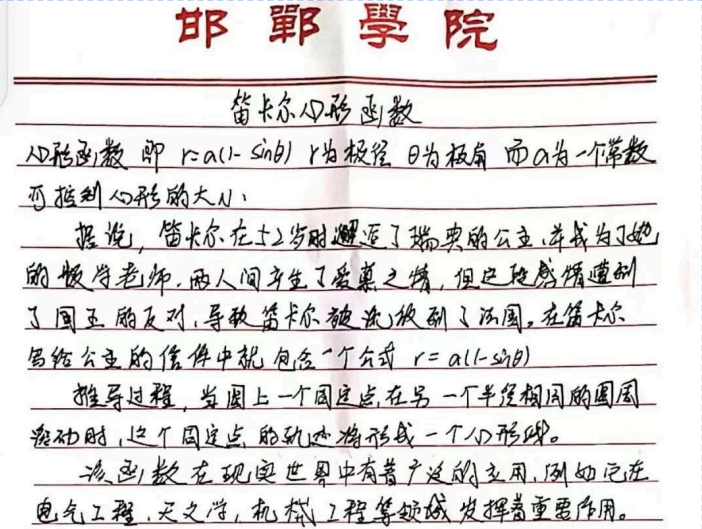 邯鄲學院
笛卡尔心形函数
心形函数 即 r=a(1-sinθ) r为极径 θ为极角 而a为一个常数
可控制心形的大小.
据说，笛卡尔在52岁时邂逅了瑞典的公主，并成为了她
的数学老师，两人间产生了爱慕之情，但这段感情遭到
了国王的反对，导致笛卡尔被流放到了法国。在笛卡尔
写给公主的信件中就包含一个公式 r=a(1-sinθ)
推导过程，当圆上一个固定点在另一个半径相同的圆周
滚动时，这个固定点的轨迹将形成一个心形线。
该函数在现实世界中有着广泛的应用，例如它在
电气工程，天文学，机械工程等领域发挥着重要作用。